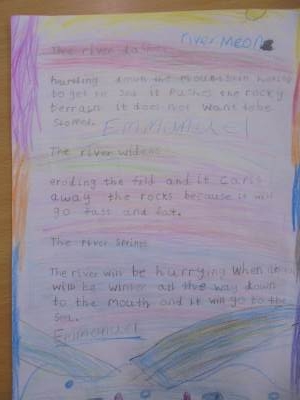 river MEON
The river
hurtling down the mountain
to get to sea it Pushes the rocky
terrain it does not want to be
slower.
Emmanuel
The river widens
eroding the fild and it caris
away the rocks because it will
go fast and fat.
The river
The river will be hurrying when it
will be winter all the way down
to the mouth and it will go to the
sea.
Emmanuel